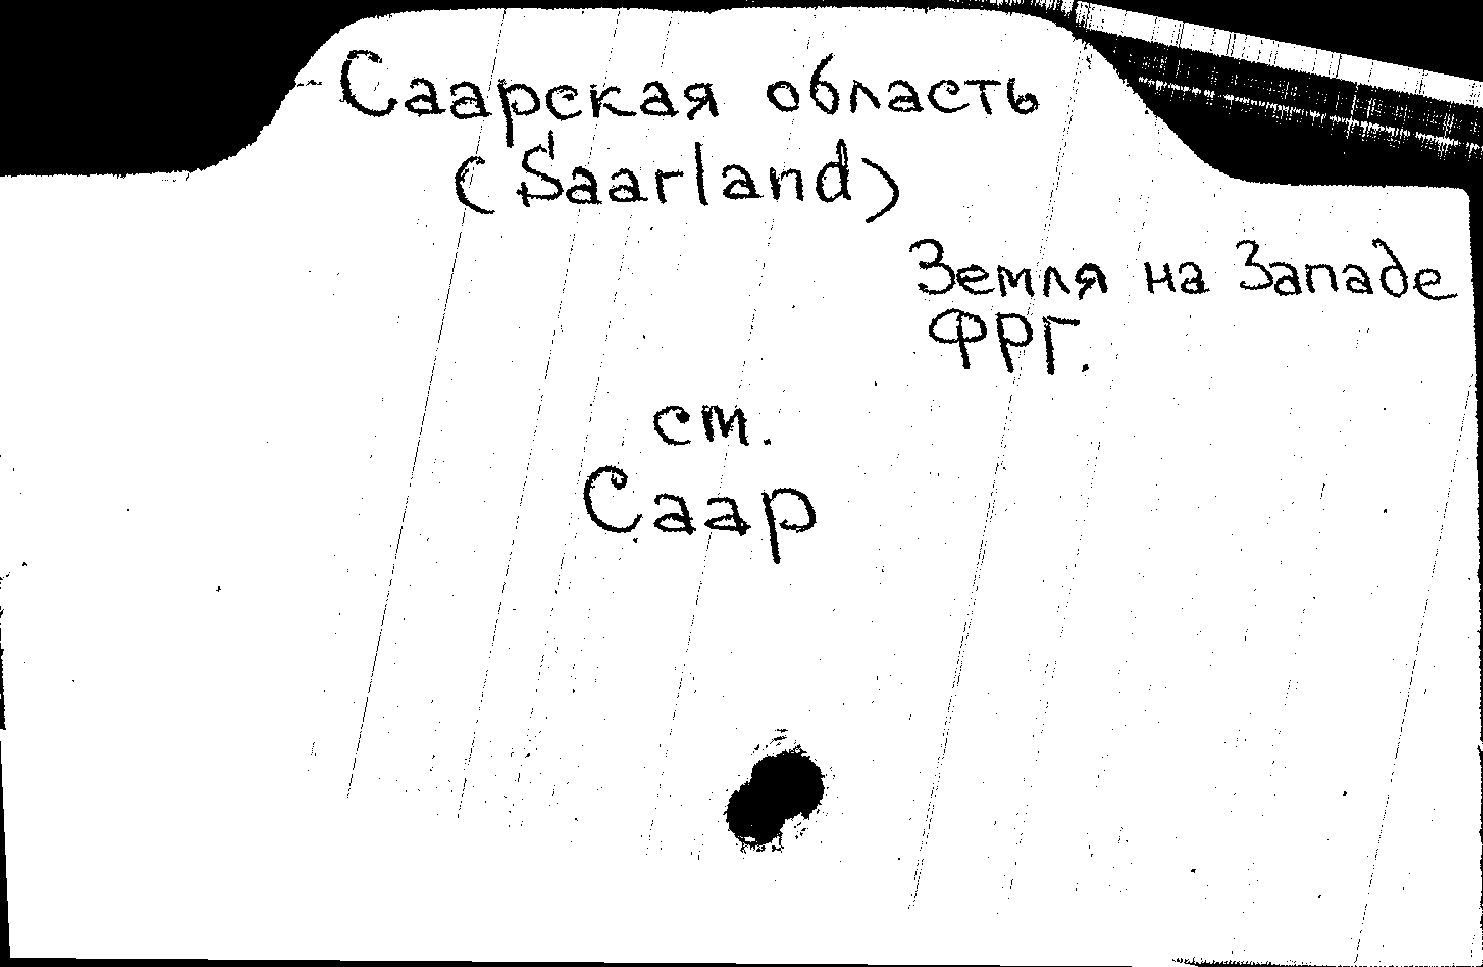 Саарская область
(Saarland)
Земля на Западе
ФРГ.
ст.
Саар